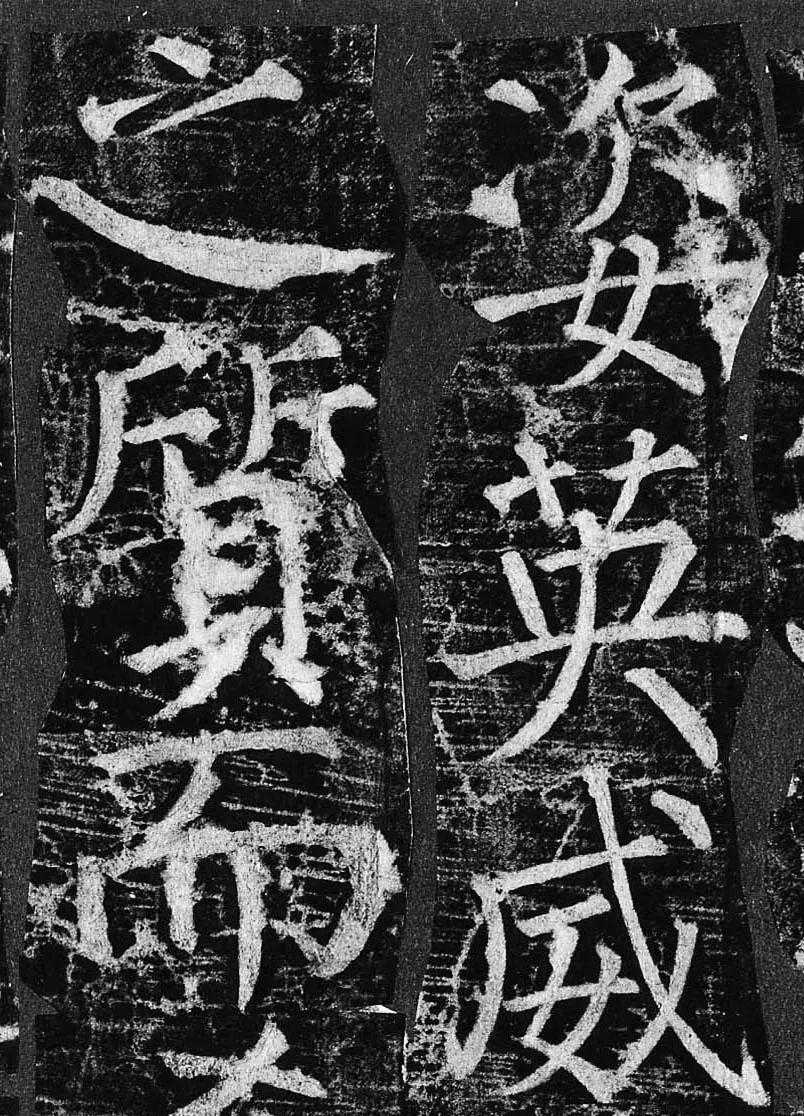 姿英威
之質而